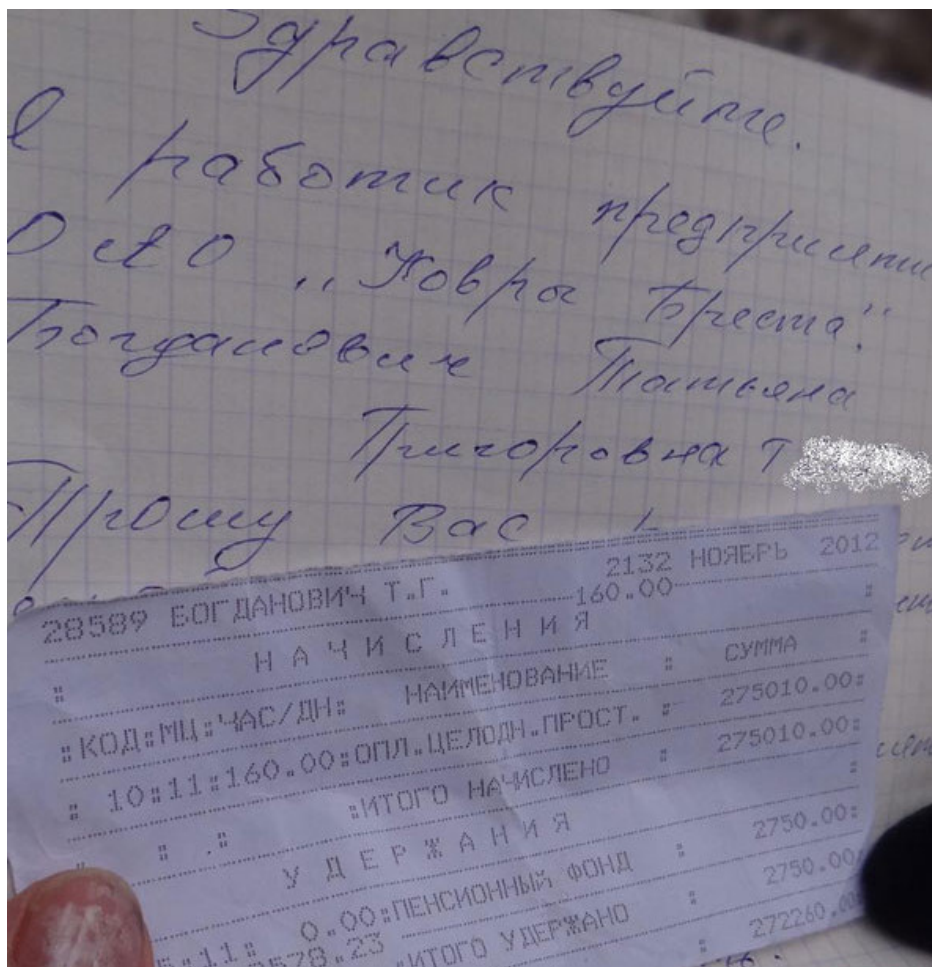 Здравствуйте.
Я работник предприяти
ОАО „Ковры Бреста".
Богданович Татьяна
Григоровна т
Прошу Вас
28589 БОГДАНОВИЧ Т.Г. 2132 НОЯБРЬ 2012
160.00
Н А Ч И С Л Е Н И Я
:КОД:МЦ:ЧАС/ДН: НАИМЕНОВАНИЕ : СУММА :
: 10:11:160.00:ОПЛ.ЦЕЛОДН.ПРОСТ. : 275010.00:
: : . : :ИТОГО НАЧИСЛЕНО : 275010.00:
У Д Е Р Ж А Н И Я :
5:11: 0.00:ПЕНСИОННЫЙ ФОНД : 2750.00:
578.23 :ИТОГО УДЕРЖАНО : 2750.00
: 272260.00